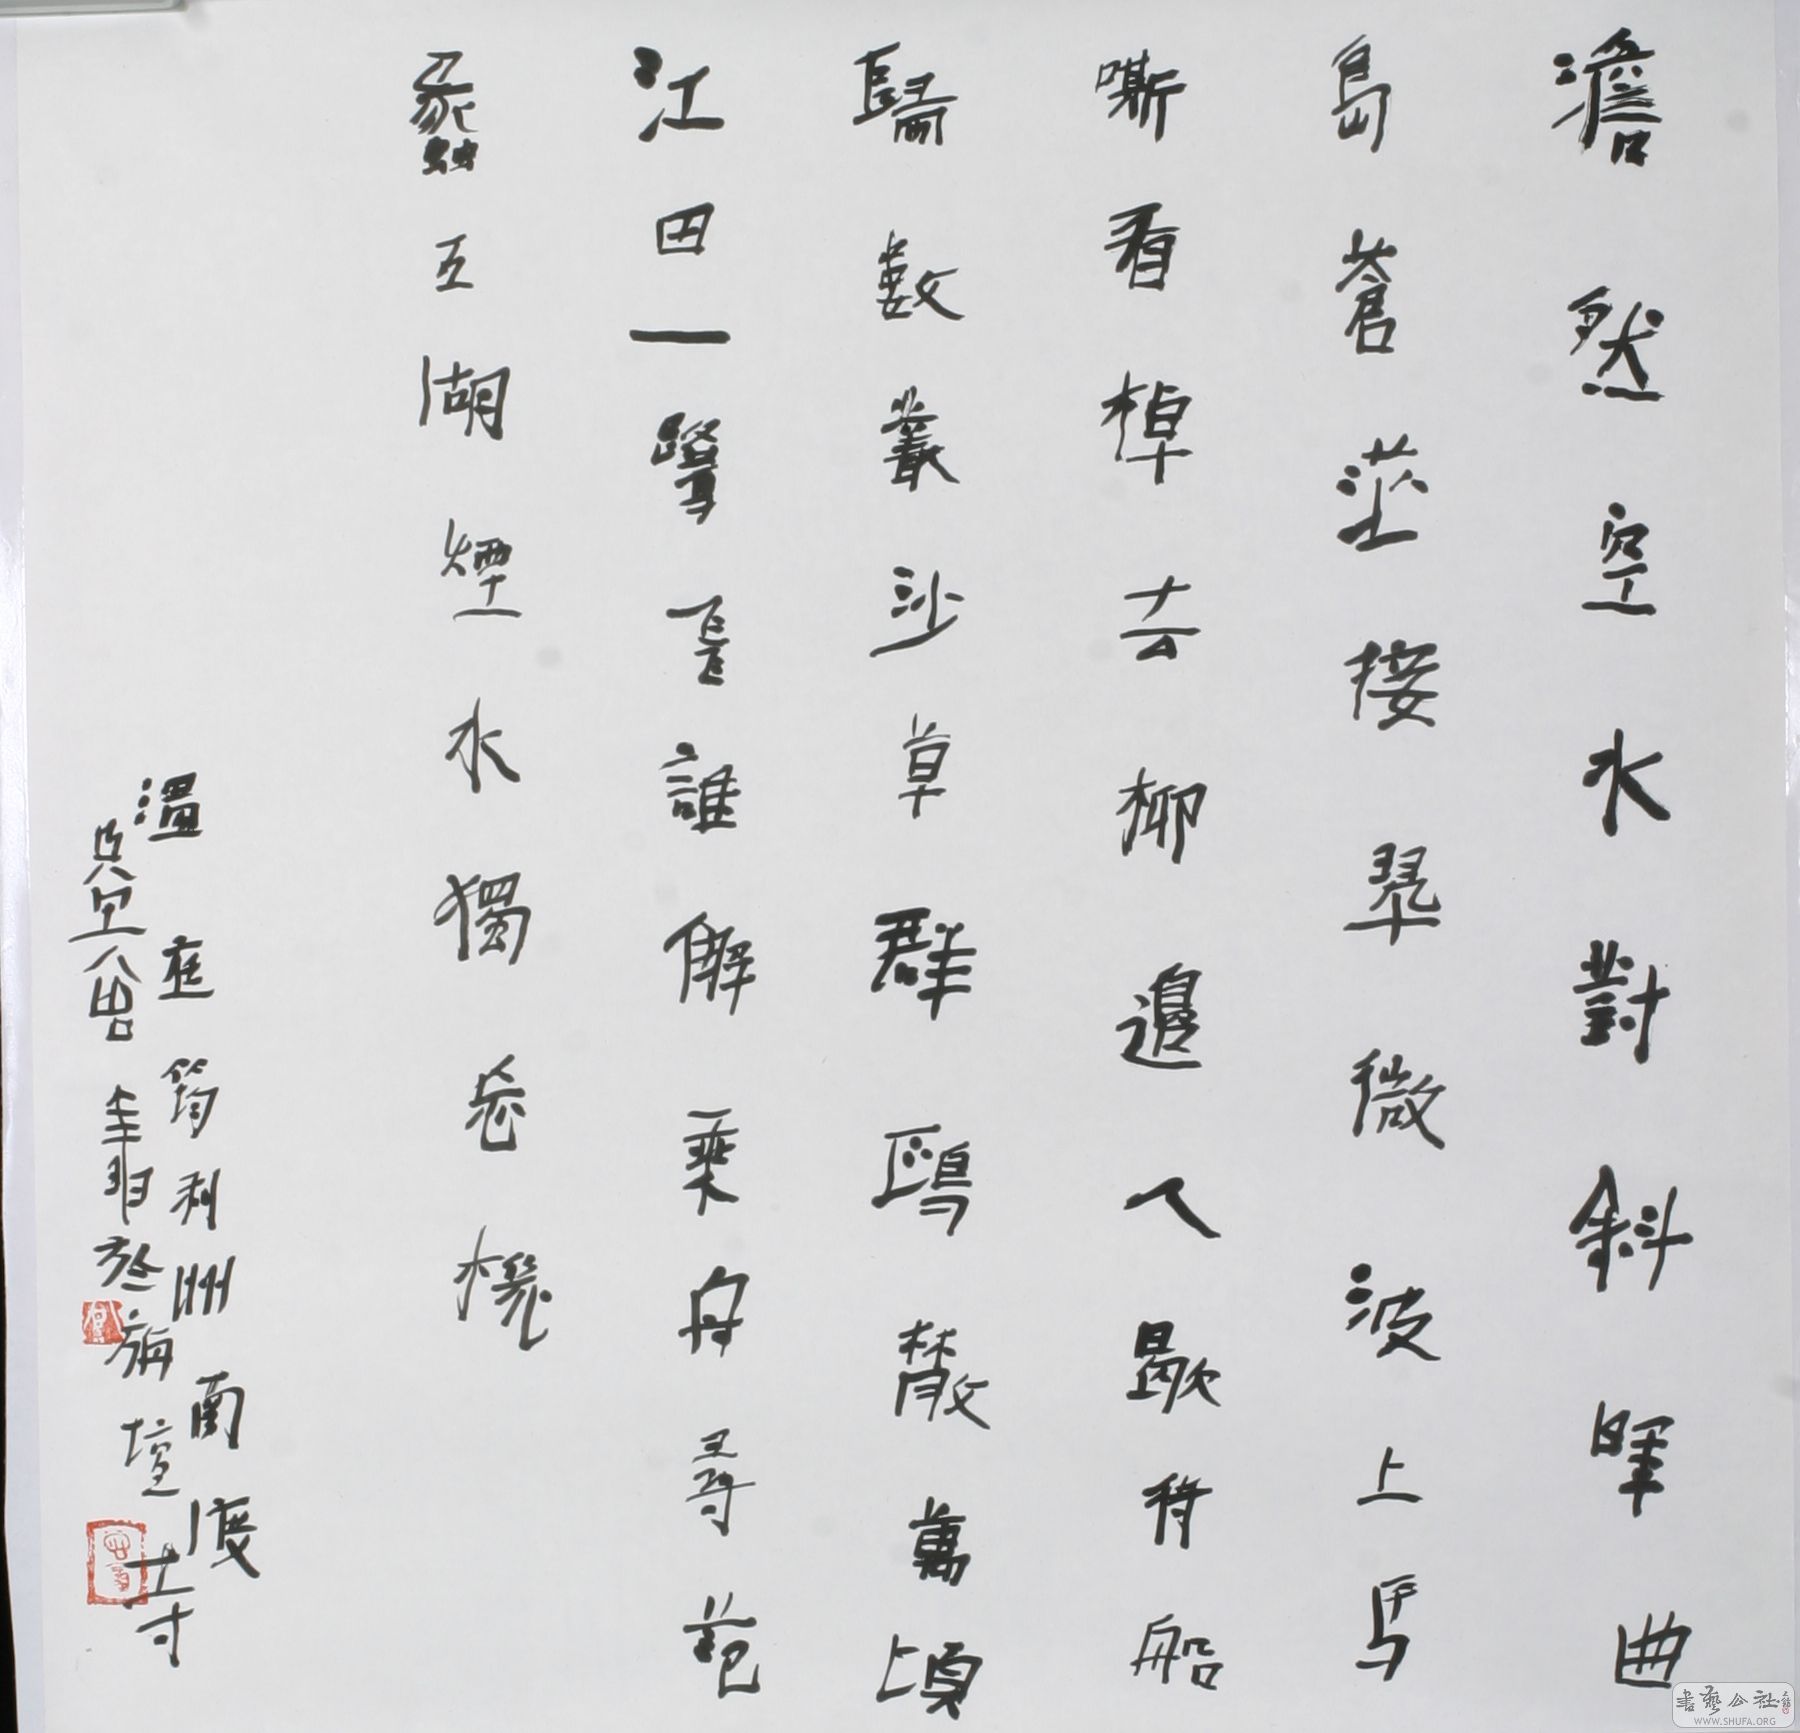 澹然空水對斜暉曲
島蒼茫接翠微波上馬
嘶看棹去柳邊人歇待船
歸數叢沙草群鷗散萬頃
江田一鷺飛誰解乘舟尋范
蠡五湖煙水獨忘機
溫庭筠利洲南渡
曾翔於
旃壇寺
書藝公社
WWW.SHUFA.ORG